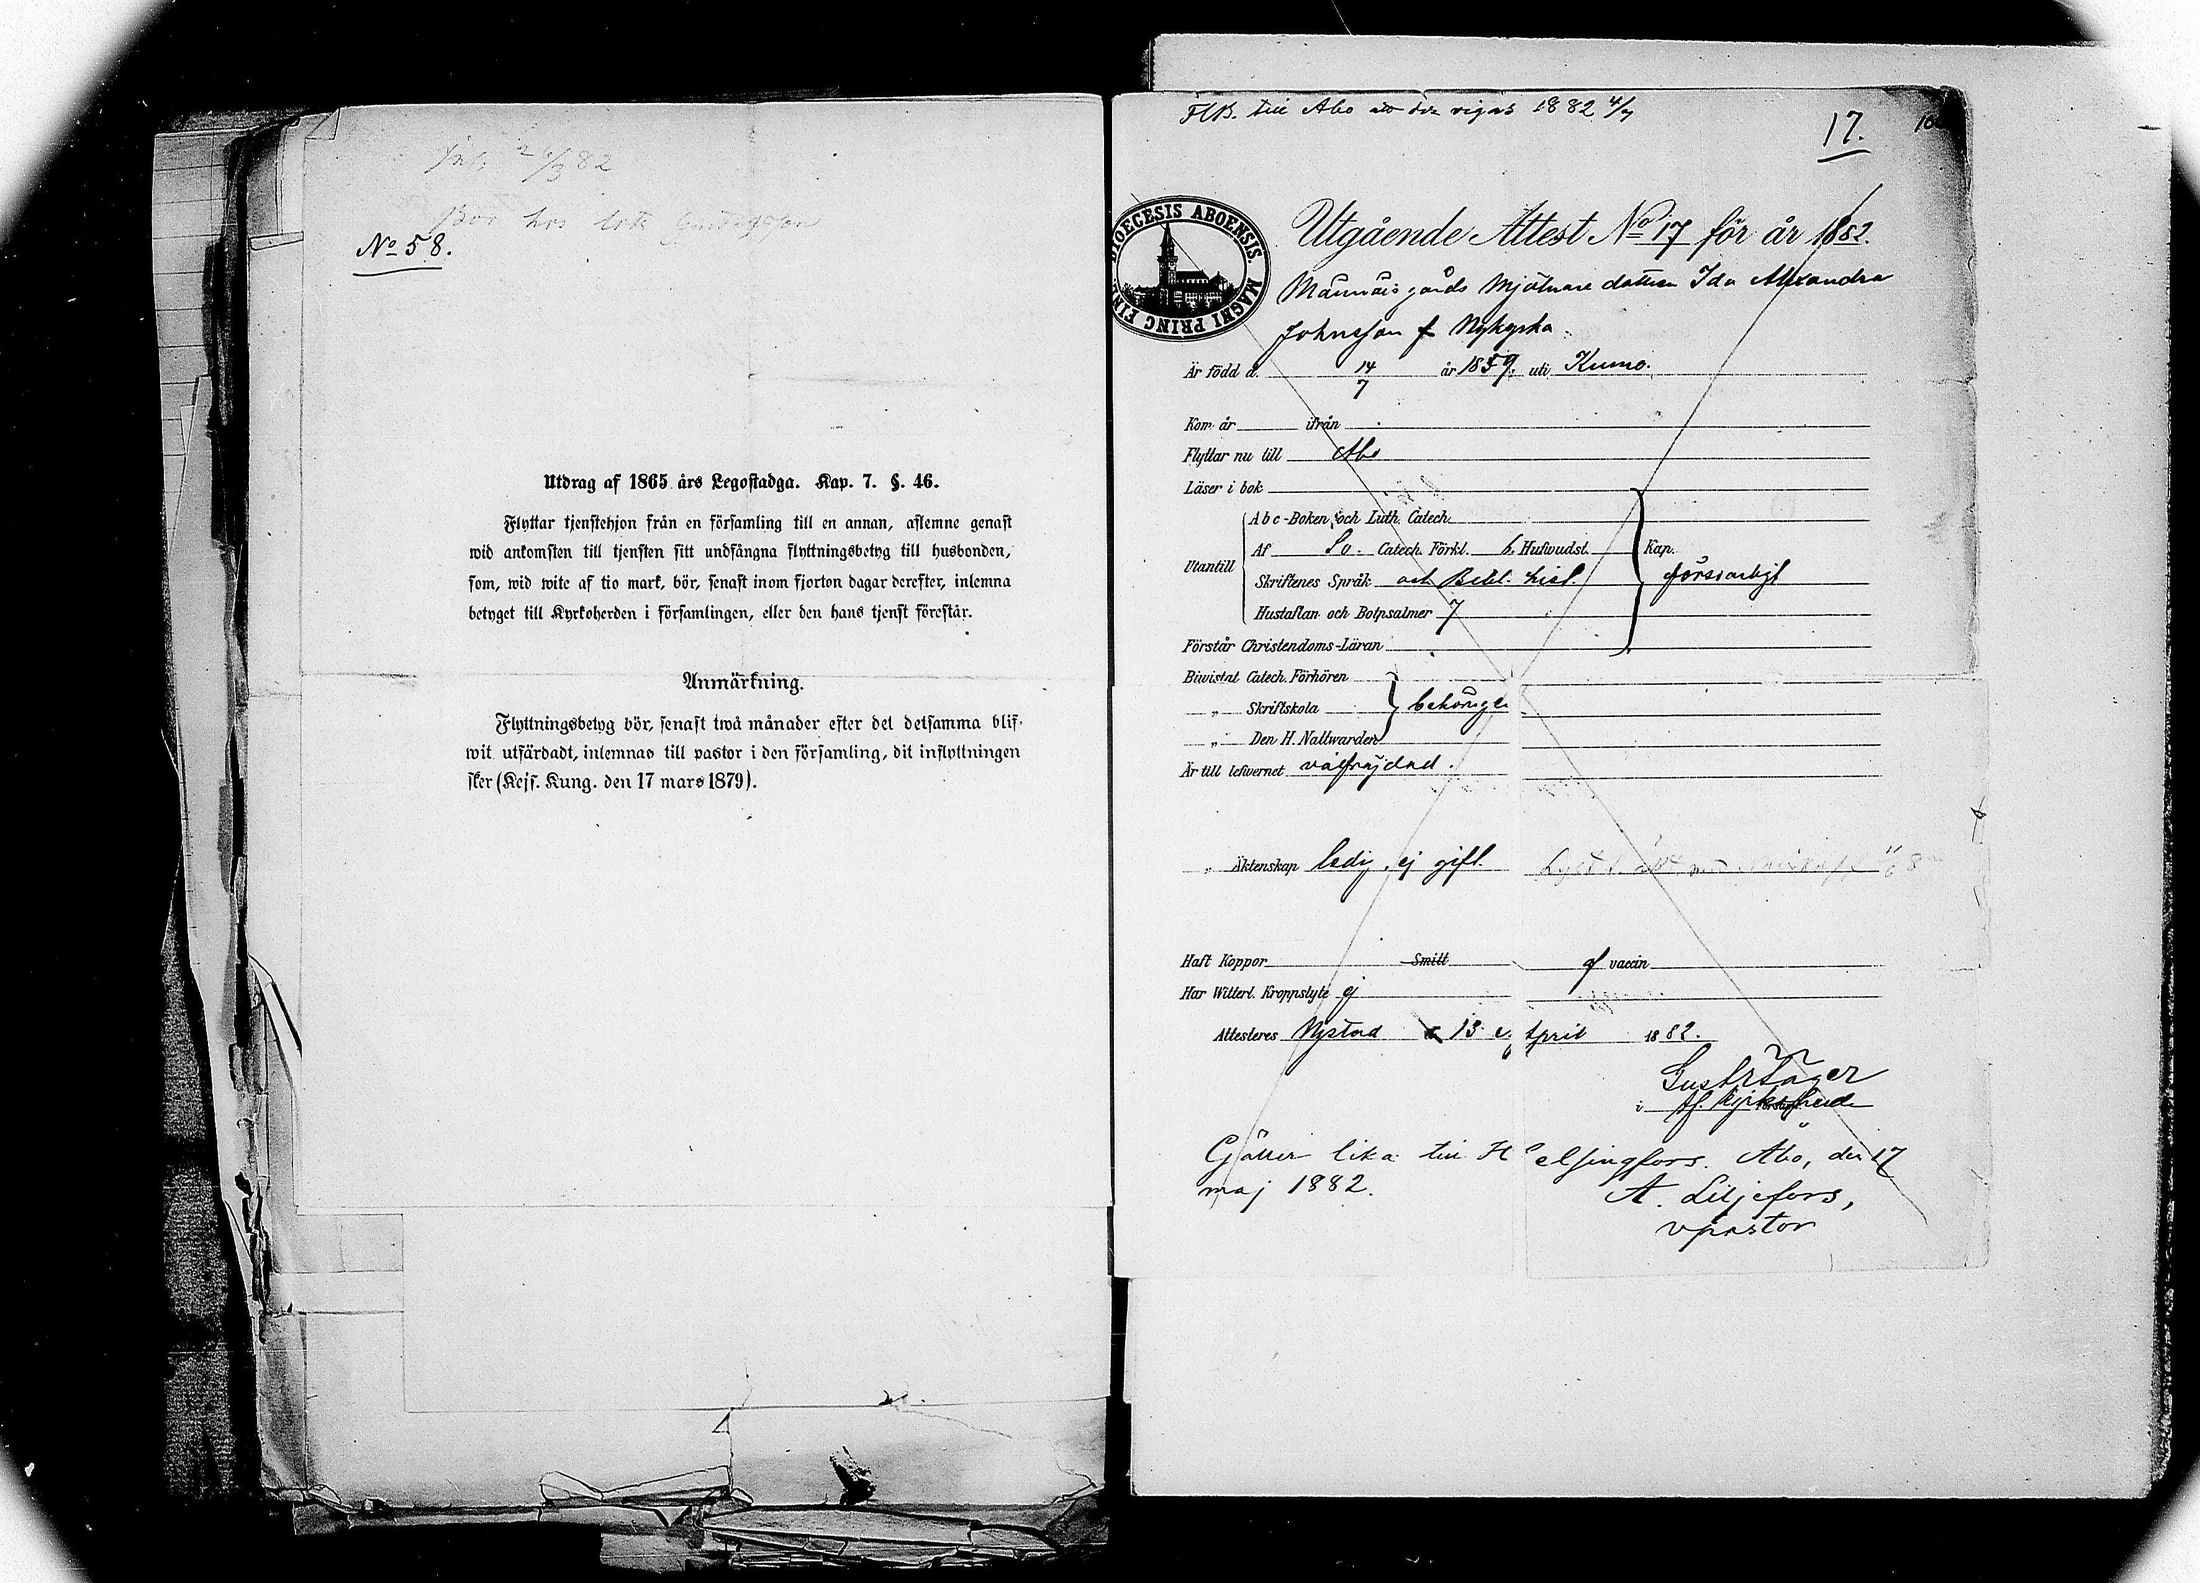 Inl. 2 /3 82
Bor hos
No 58.
Utdrag af 1865 års Legostadga. Kap. 7. §. 46.
Flyttar tjenstehjon från en församling till en annan, aflemne genast
wid ankomsten till tjensten sitt undfångna flyttningsbetyg till husbonden,
som, wid wite af tio mark, bör, senast inom fjorton dagar derefter, inlemna
betyget till Kyrkoherden i församlingen, eller den hans tjenst förestår.
Anmärkning.
Flyttningsbetyg bör, senast två månader efter det detsamma blif-
wit utfärdadt, inlemnas till pastor i den församling, dit inflyttningen
sker (Kejs. Kung. den 17 mars 1879).
FlB. till Åbo att der vigas 1882 4/7
17.
DIOECESIS ABOENSIS. MAGNI PRINC FINL
Utgående Attest No 17 för år 1882.
gårds Mjölnare dottren Ida Alexandra
Johnsson f Nykyrka
Är född d. 14/7 år 1859. uti Kumo.
Kom år ifrån
Flyttar nu till Åbo
Läser i bok
Utantill
Abc-Boken och Luth. Catech.
Af Sv. Catech. Förkl. h. Hufwudst. Kap.
Skriftenes Språk och Bibl. hist. försvarligt
Hustaflan och Botpsalmer 7
Förstår Christendoms-Läran
Biwistat Catech. Förhören
„ Skriftskola behörigen
„ Den H. Nattwarden
Är till lefwernet välfräjdad.
„ Äktenskap ledig, ej gift.
Haft Koppor Smitt af vaccin
Har Witterl. Kroppslyte ej
Attesteres Nystad d. 13 April 1882.
Gust
i tf. Kyrkoherde
Gäller lika till Helsingfors. Åbo, den 17
maj 1882.
A. Liljefors,
v pastor